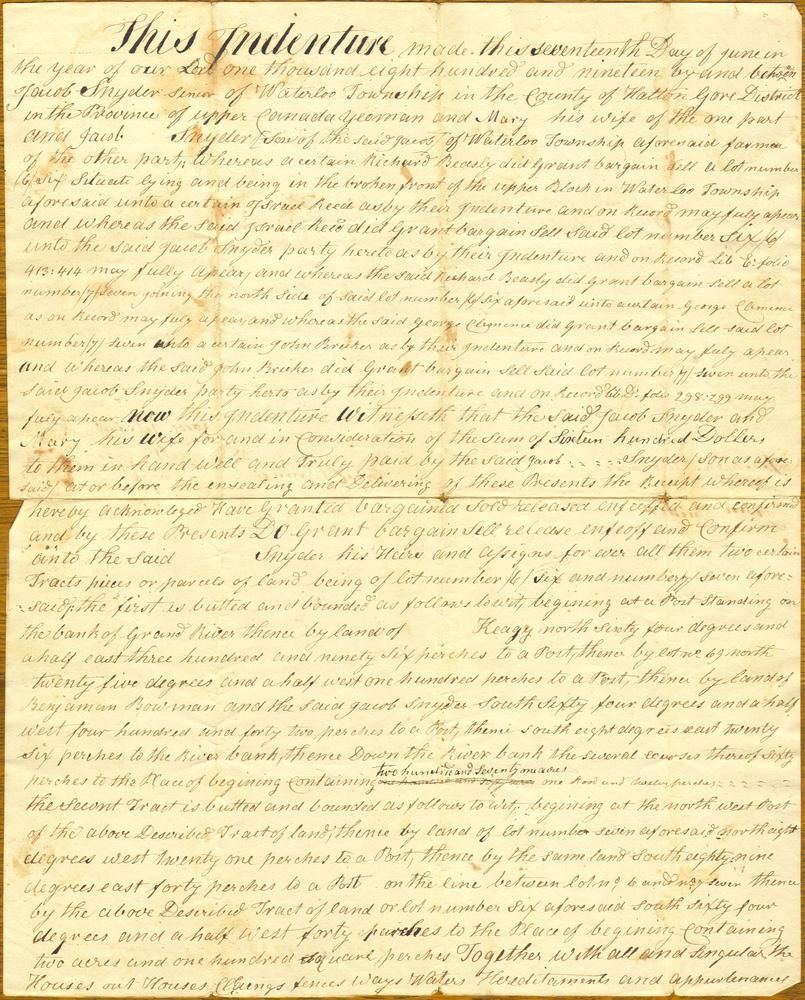 This Indenture made this seventeenth Day of June in
the year of our Lord one thousand eight hundred and nineteen by and between
Jacob Snyder Senior of Waterloo Township in the County of Halton Gore District
in the Province of upper Canada yeoman and Mary his wife of the one part
and Jacob Snyder (Son of the said Jacob) of Waterloo Township aforesaid farmer
of the other party, whereas a certain Richard Beasly did Grant bargain sell a lot number
/6/ Six Situate lying and being in the broken front of the upper Block in Waterloo Township
aforesaid unto a certain Israel Reed as by their Indenture and on Record may fully apear
and whereas the said Israel Reed did Grant bargain Sell Said lot number Six /6/
unto the said Jacob Snyder party hereto as by their Indenture and on Record Lib E: folio
413:414 may fully apear, and whereas the said Richard Beasly did grant bargain sell a lot
number /7/ seven joining the north Side of said lot number /6/ six aforesaid unto a certain George Clemence
as on Record may fuly apear and whereas the said George Clemence did Grant bargain Sell said lot
number /7/ seven unto a certain John Bricker as by their Indenture and on Record may fuly apear
and whereas the said John Bricker did Grant bargain sell Said lot number /7/ seven unto the
said Jacob Snyder party herto as by their Indenture and on Record folio 298:299 may
fuly apear. Now this Indenture Witnesseth that the said Jacob Snyder and
Mary his wife for and in Consideration of the Sum of Sixteen hundred Dollers
to them in hand well and Truly paid by the said Jacob Snyder / son as afore-
said / at or before the ensealing and Delivering of these Presents the Receipt whereof is
hereby acknowleged Have Granted bargained Sold released enfeoffed and confirmed
and by these Presents Do Grant bargain Sell release enfeoff and Confirm
unto the said Snyder his Heirs and assigns for ever all them two certain
Tracts pieces or parcels of land being of lot number /6/ Six and number /7/ Seven afore-
-said, the first is butted and bounded as follows to wit, begining at a Post Standing on
the bank of Grand River thence by land of Keagy north Sixty four degrees and
a half east three hundred and ninety Six perches to a Post, thence by lot no 69 north
twenty five degrees and a half west one hundred perches to a Post, thence by land of
Benjaman Bowman and the said Jacob Snyder South Sixty four degrees and a half
west four hundred and forty two perches to a Post, thence South eight degrees east twenty
Six perches to the River bank, thence Down the River bank the several courses thereof Sixty
perches to the Place of begining Containing two hundred and Seventy acres one Rood and twelve perches
the Second Tract is butted and bounded as follows to wit, begining at the north west Post
of the above Described Tract of land, thence by land of lot number seven aforesaid north eight
degrees west twenty one perches to a Post, thence by the same land South eighty nine
degrees east forty perches to a Post on the line between lot no 6 and no 7 seven thence
by the above Described Tract of land or lot number Six aforesaid South Sixty four
degrees and a half west forty perches to the Place of begining Containing
two acres and one hundred square perches Together with all and Singular the
Houses out Houses fences ways Waters Hereditaments and appurtenances